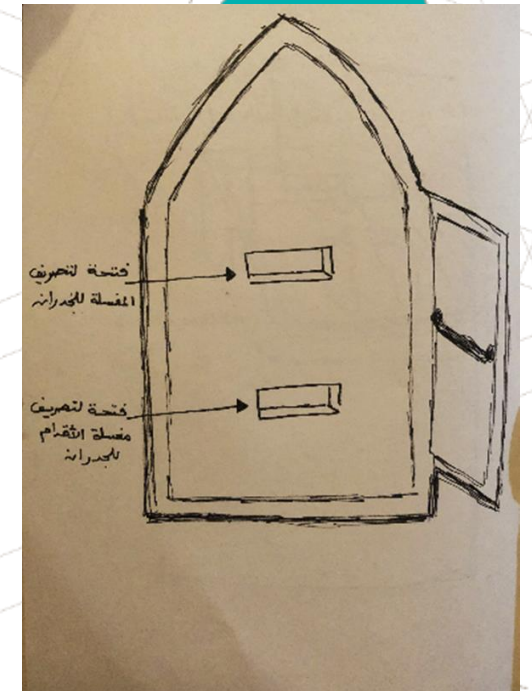 فتحة لتصريف
المغسلة للجدران
فتحة لتصريف
مغسلة الأقدام
للجدران